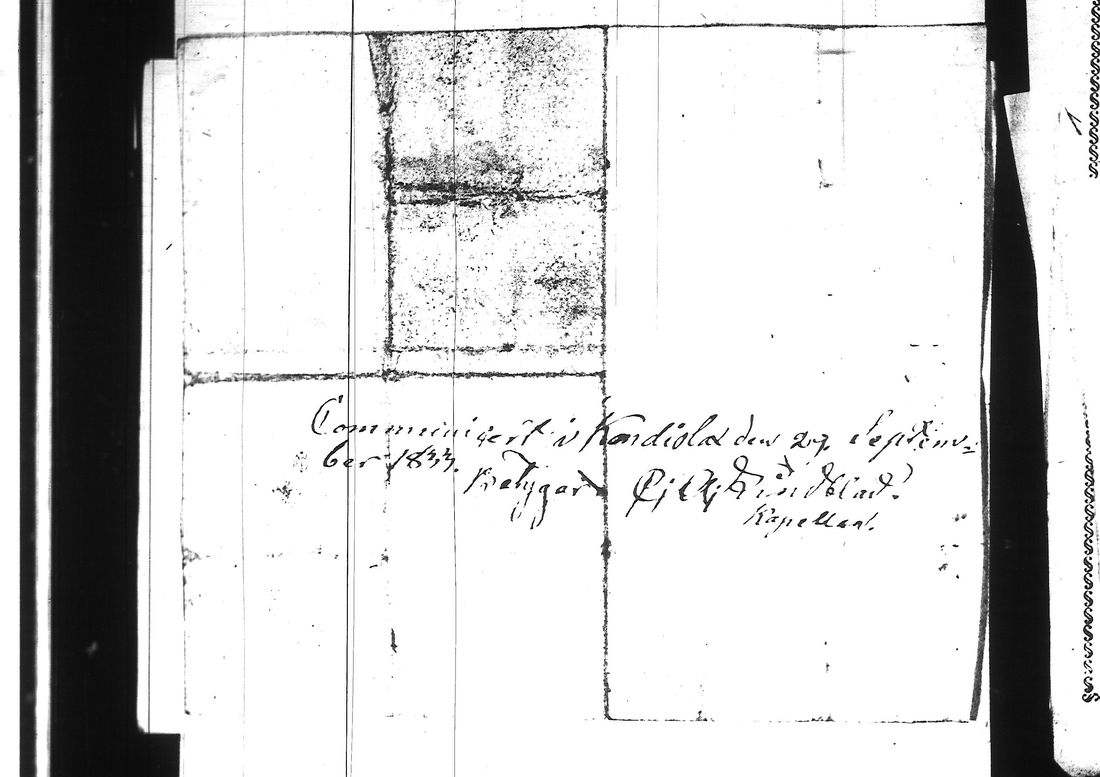 Communicert i Kondiola den 29. Septem=
ber 1833.
Betygar
Kapellan.